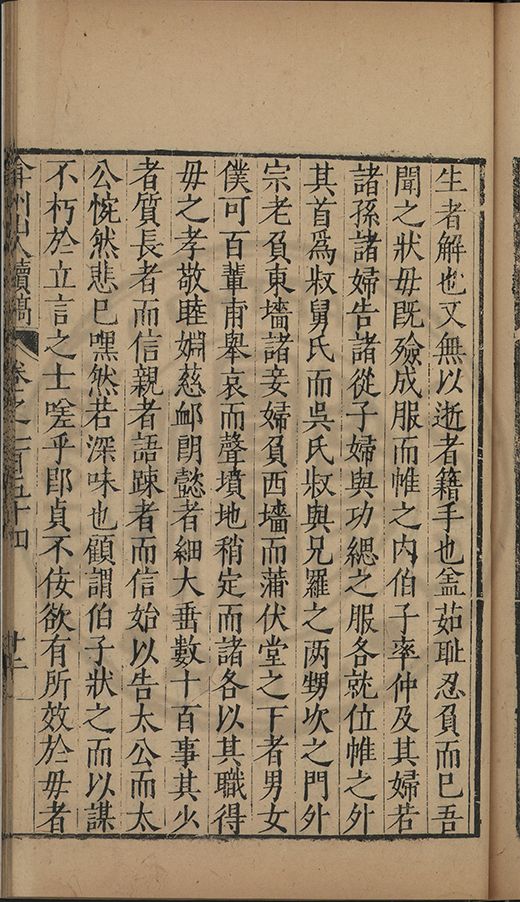 生者解也又無以逝者籍手也盍茹耻忍負而已吾
聞之狀毋既殮成服而帷之内伯子率仲及其婦若
諸孫諸婦告諸從子婦與功緦之服各就位帷之外
其首爲叔舅氏而吳氏叔與兄羅之两甥次之門外
宗老負東墻諸妾婦負西墻而蒲伏堂之下者男女
僕可百輩甫舉哀而聲墳地稍定而諸各以其職得
毋之孝敬睦婣慈䘏朗懿者細大垂數十百事其少
者質長者而信親者語踈者而信始以告太公而太
公惋然悲已嘿然若深味也顧謂伯子狀之而以謀
不朽於立言之士嗟乎郎貞不佞欲有所效於毋者
弇州山人續稿 卷之一百五十四